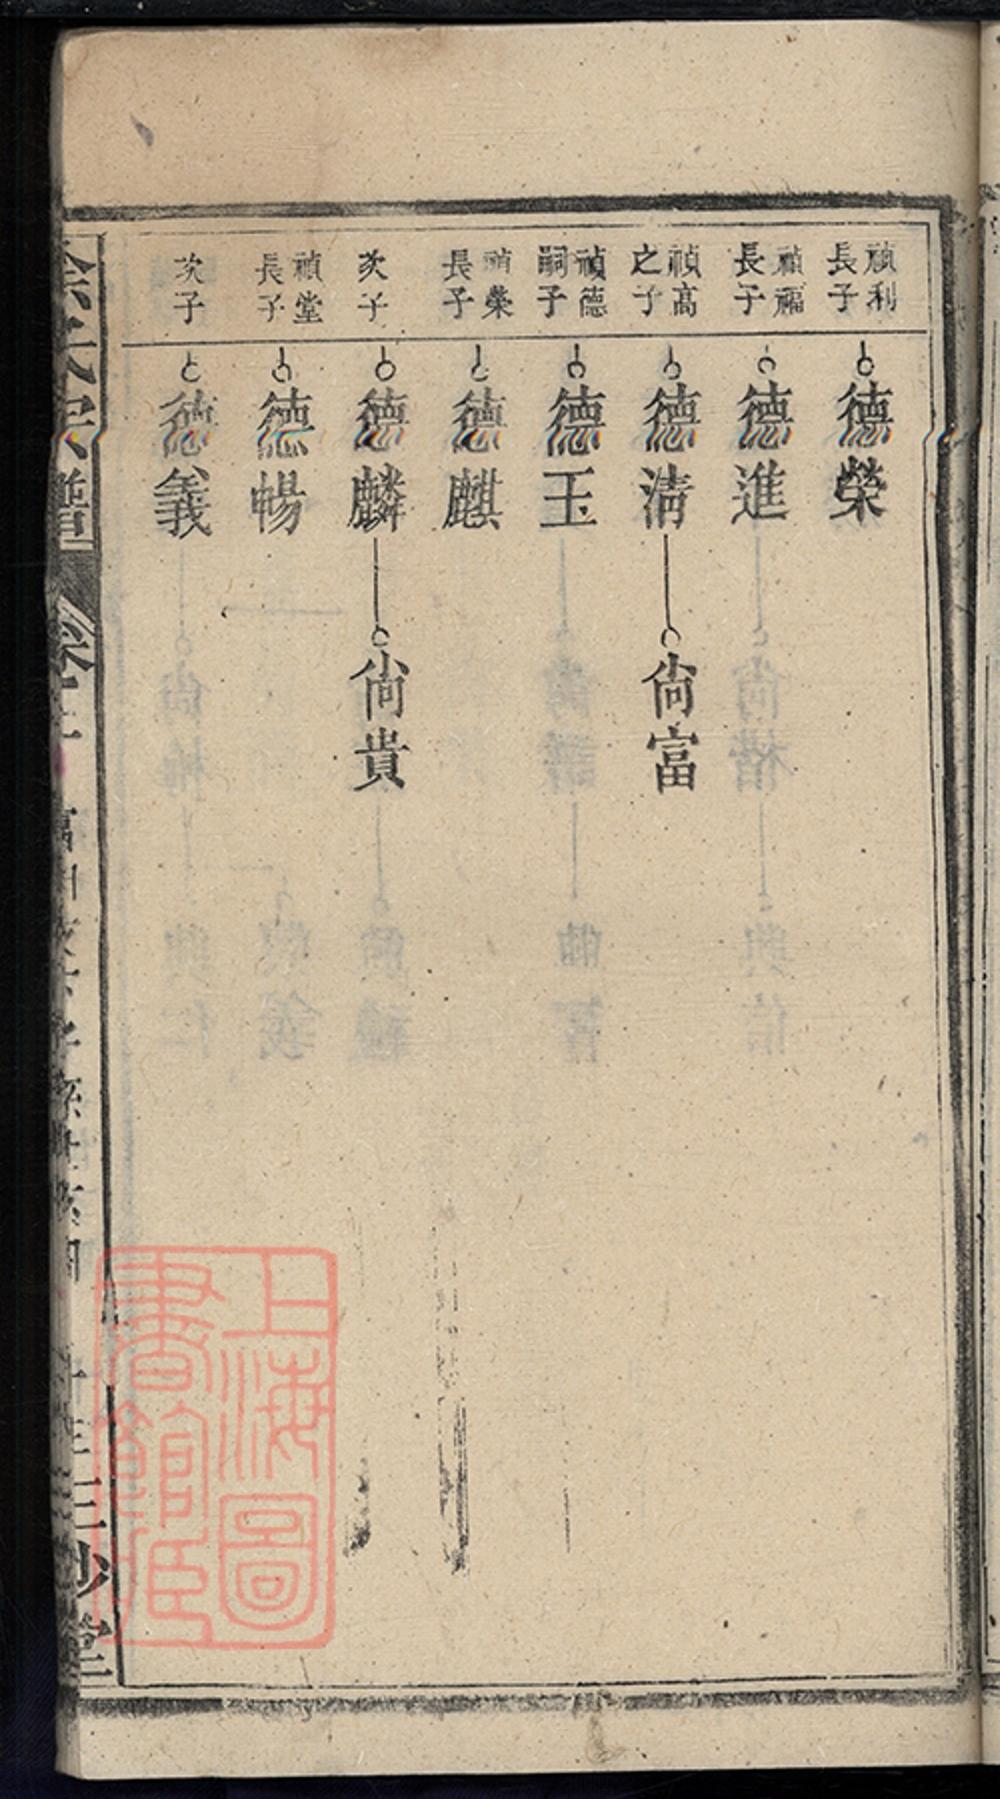 禎利長子
德榮
禎福長子
德進
禎高之子
德淸
尙富
禎德嗣子
德玉
禎榮長子
德麒
次子
德麟
尙貴
禎堂長子
德暢
次子
德義
氏宗譜
上海圖書館藏